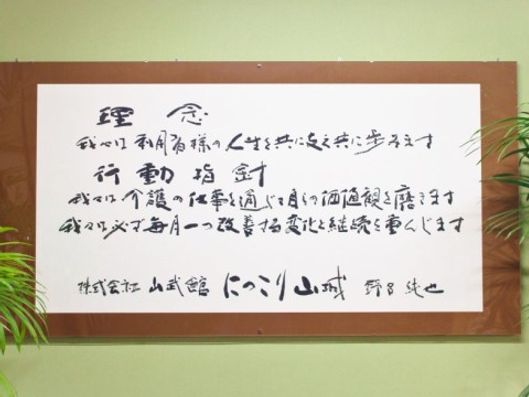 理念
我々は利用者様の人生を共に支え共に歩みます
行動指針
我々は介護の仕事を通じて自らの価値観を磨きます
我々は必ず毎月一つ改善する変化と継続を重んじます
株式会社 山武館 にっこり山城 野呂純也